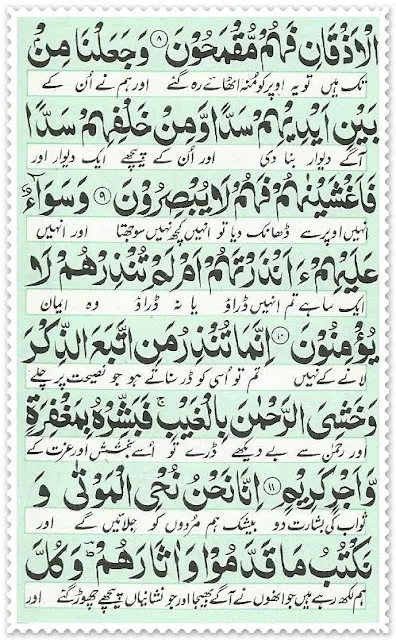 الْاَذْقَانِ فَهُمْ مُّقْمَحُوْنَ ۝۸ وَجَعَلْنَا مِنْۢ
تک ہیں تو یہ اوپر کو منہ اٹھائے رہ گئے اور ہم نے اُن کے
بَيْنِ اَيْدِيْهِمْ سَدًّا وَّمِنْ خَلْفِهِمْ سَدًّا
آگے دیوار بنا دی اور اُن کے پیچھے ایک دیوار اور
فَاَغْشَيْنٰهُمْ فَهُمْ لَا يُبْصِرُوْنَ ۝۹ وَسَوَآءٌ
انہیں اوپر سے ڈھانک دیا تو انہیں کچھ نہیں سوجھتا اور انہیں
عَلَيْهِمْ ءَاَنْذَرْتَهُمْ اَمْ لَمْ تُنْذِرْهُمْ لَا
ایک سا ہے تم انہیں ڈراؤ یا نہ ڈراؤ وہ ایمان
يُؤْمِنُوْنَ ۝۱۰ اِنَّمَا تُنْذِرُ مَنِ اتَّبَعَ الذِّكْرَ
لانے کے نہیں تم تو اُسی کو ڈر سناتے ہو جو نصیحت پر چلے
وَخَشِىَ الرَّحْمٰنَ بِالْغَيْبِ ۚ فَبَشِّرْهُ بِمَغْفِرَةٍ
اور رحمٰن سے بے دیکھے ڈرے تو اُسے بخشش اور عزت کے
وَّاَجْرٍ كَرِيْمٍ ۝۱۱ اِنَّا نَحْنُ نُحْىِ الْمَوْتٰى وَ
ثواب کی بشارت دو بیشک ہم مُردوں کو جلائیں گے اور
نَكْتُبُ مَا قَدَّمُوْا وَاٰثَارَهُمْ ؕ وَكُلَّ
ہم لکھ رہے ہیں جو انھوں نے آگے بھیجا اور جو نشانیاں پیچھے چھوڑ گئے اور